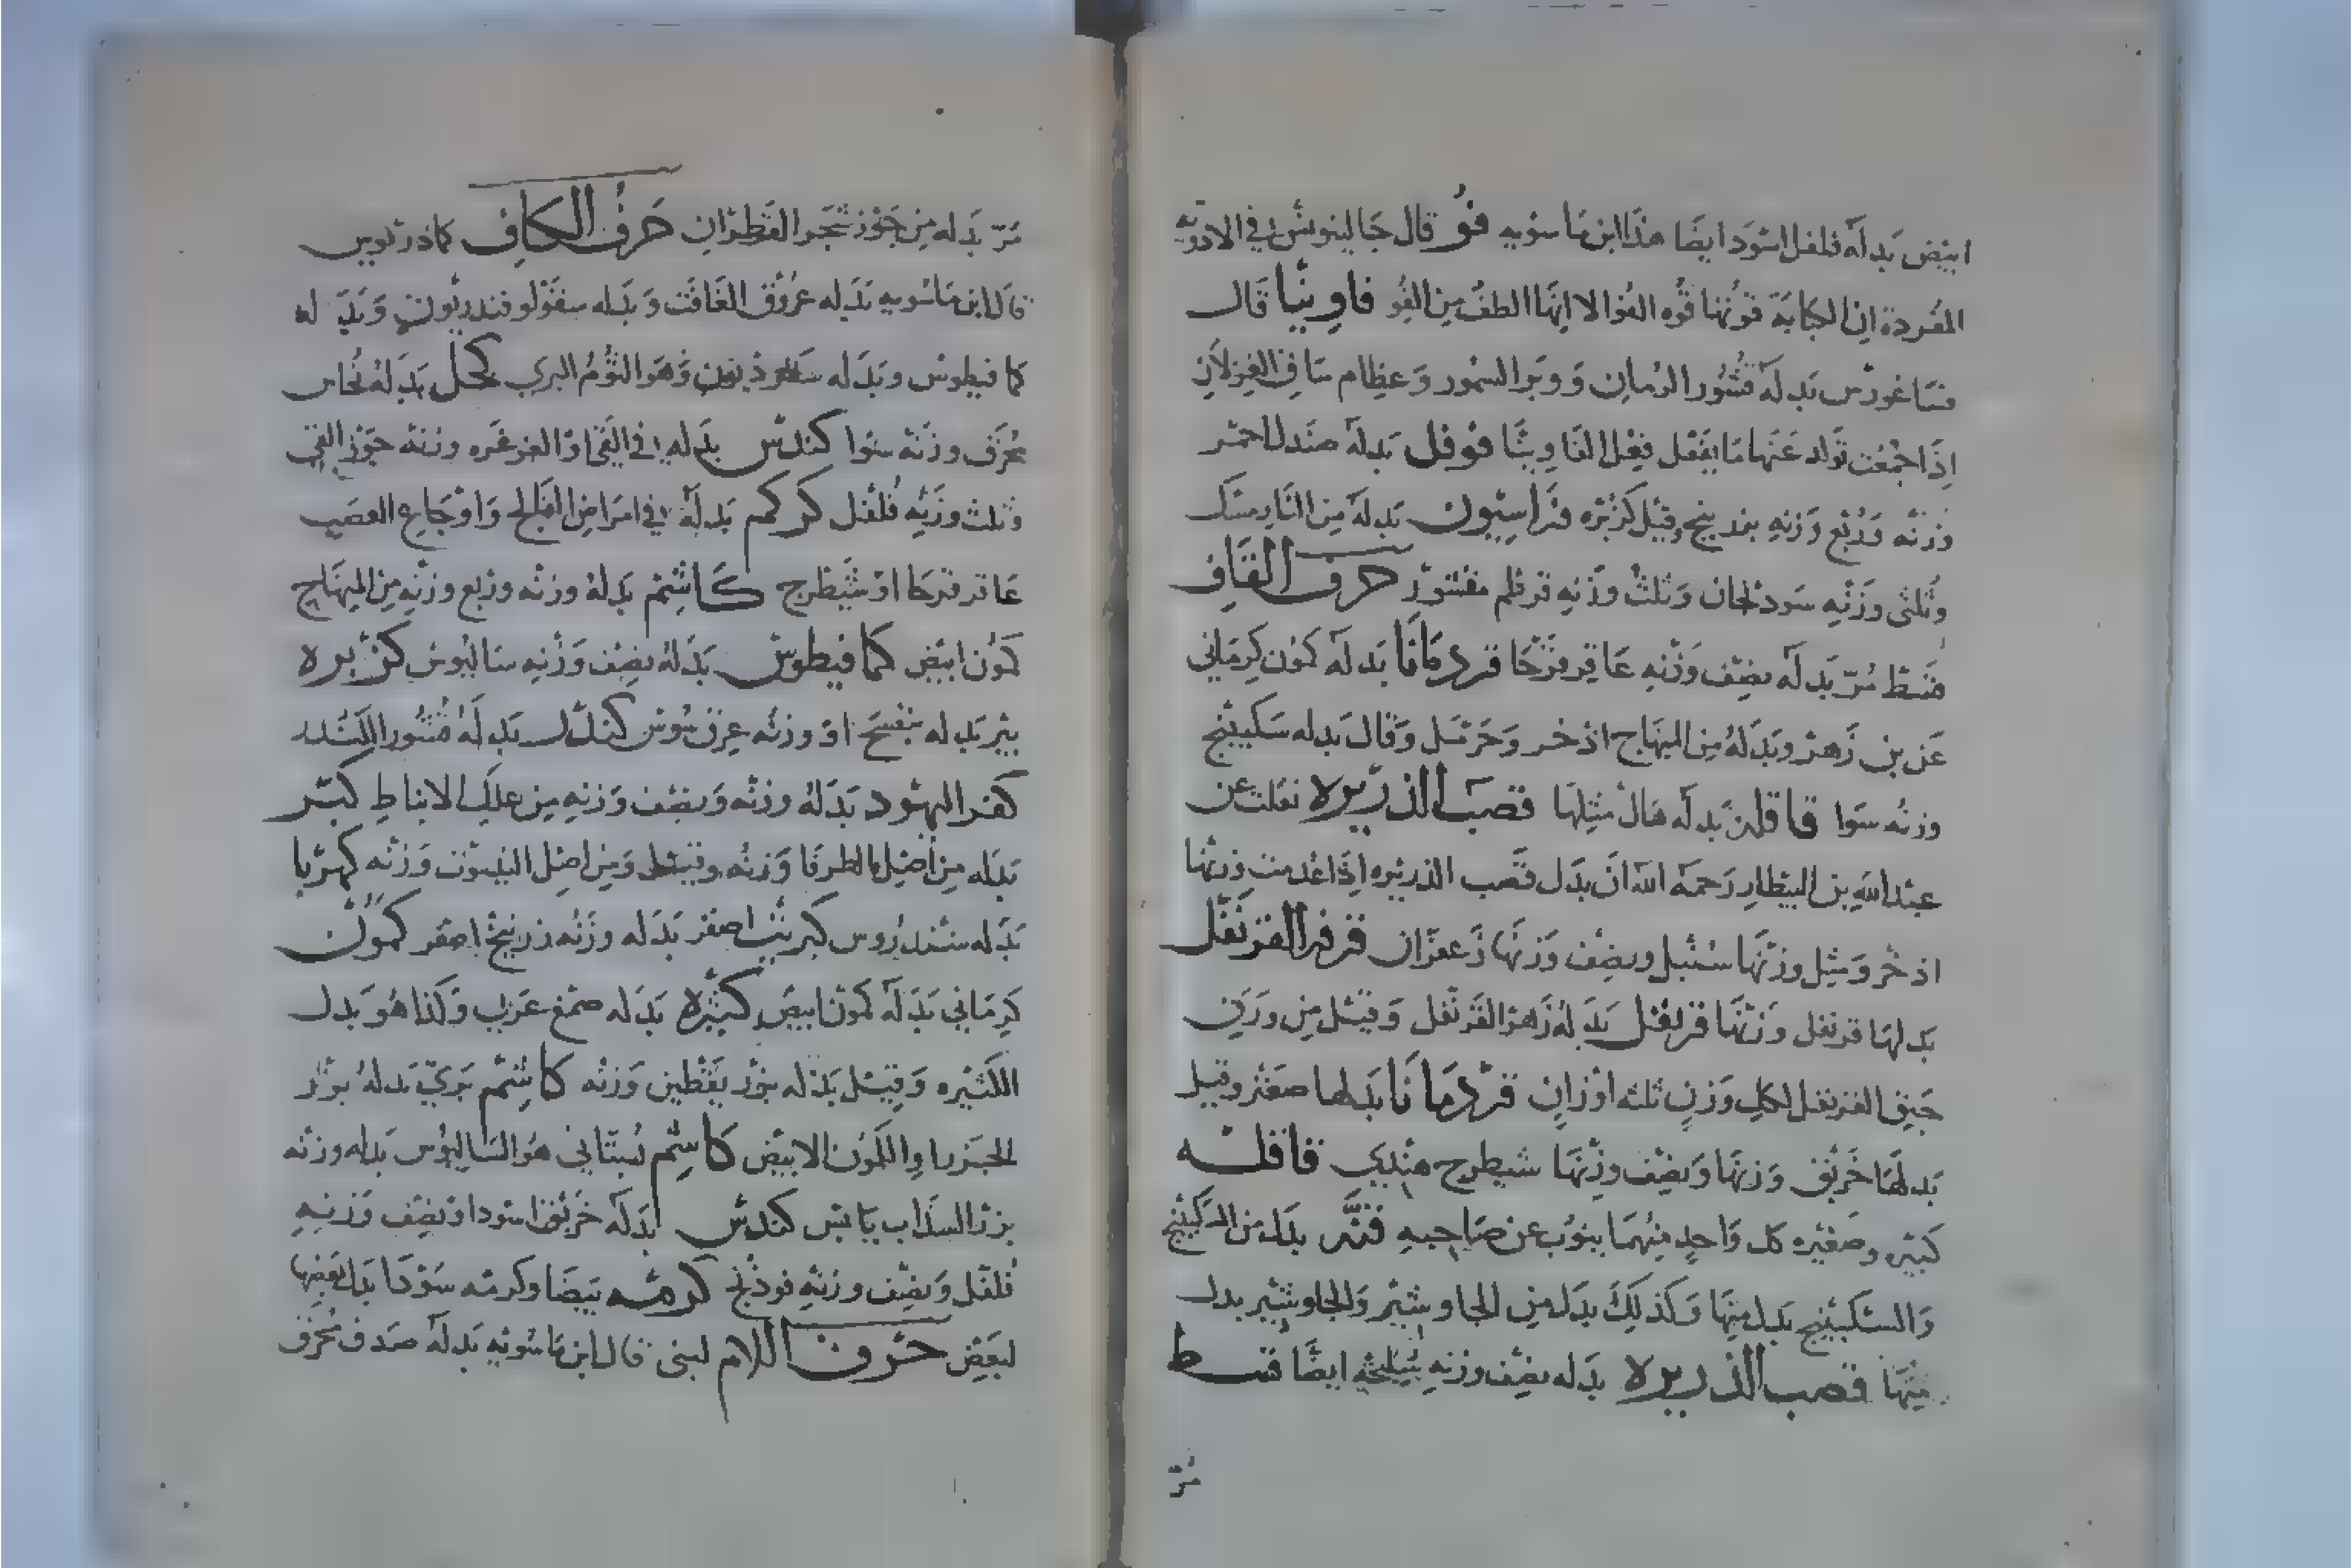 ابيض بدله فلفل اسود ايضا هذا ابن ماسويه فو قال جالينوس في الادويه
المفرده ان الكبابة قوتها قوه الفوا الا انها الطف من الفو فاوينا قال
بدله قشور الرمان ووبر السمور وعظام ساق الغزلان
اذا جمعت تولد عنها ما يفعل فعل الفاوينا فوفل بدله صندل احمر
وزنه وربع وزنه وقيل كزبره فراسيون بدله من
وثلثي وزنه وثلث وزنه قرطم مقشور حرف القاف
قسط مر بدله نصف وزنه عاقر قرحا قردمانا بدله كمون كرماني
عن بن زهر وبدله من المنهاج اذخر وحرمل وقال بدله سكبينج
وزنه سوا قاقله بدله هال مثلها قصب الذريره نقلت عن
عبد الله بن البيطار رحمه الله ان بدل قصب الذريره اذا عدمت وزنها
اذخر ومثل وزنها سنبل ونصف وزنها زعفران قرفه القرنفل
بدلها قرنفل وزنها قرنفل بدله زهر القرنفل وقيل من وزني
القرنفل لكل وزن ثلثه اوزان قردمانا بدلها صعتر وقيل
بدلها خربق وزنها ونصف وزنها شيطرج هندي قاقله
كبيره وصغيره كل واحد منهما ينوب عن صاحبه قنه بدل من السكبينج
والسكبينج بدل منها وكذلك بدل من الجاوشير والجاوشير بدل
منها قصب الذريره بدله نصف وزنه ايضا قسط
مر
مر بدله من جوز شجر القطران حرف الكاف كمادريوس
قال ابن ماسويه بدله عروق الغافت وبدله سقولوفندريون وبدله
كمافيطوس وبدله وهو الثوم البري كحل بدله نحاس
محرق وزنه سوا كندس بدله في القي او الغرغره وزنه جوز القي
وثلث وزنه فلفل كركم بدله في امراض الفالج واوجاع العصب
عاقر قرحا او شيطرج كاشم بدله وزنه وربع وزنه من المنهاج
كمون ابيض كمافيطوس بدله نصف وزنه ساليوس كزبره
بير بدله بنفسج او وزنه عرق سوس كندر بدله قشور الكندر
كفر اليهود بدله وزنه ونصف وزنه من علك الانباط كبر
بدله من اصل الطرفا وزنه وقيل ومن اصل وزنه كهربا
بدله سندروس كبريت اصفر بدله وزنه زرنيخ اصفر كمون
كرماني بدله كمون ابيض كثيره بدله صمغ عربي وكذا هو بدل
الكثيره وقيل بدله بزر يقطين وزنه كاشم بري بدله بزر
الجزر او الكمون الابيض كاشم بستاني هو الساليوس بدله وزنه
بزر السذاب يابس كندس بدله خربق اسود او نصف وزنه
فلفل ونصف وزنه فوذنج كرمه بيضا وكرمه سودا بدل بعضها
لبعض حرف اللام لبنى قال ابن ماسويه بدله صدف محرق